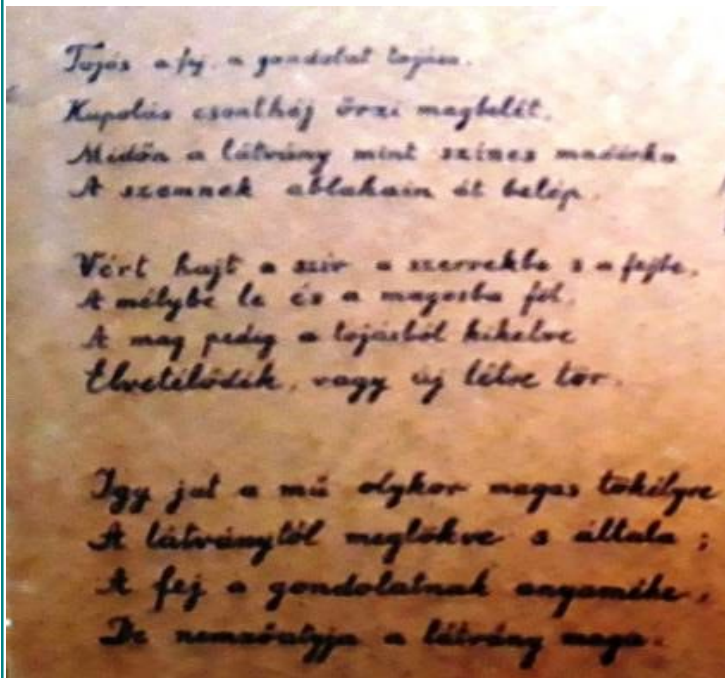 Tojás a fej, a gondolat tojása.
Kupolás csonthéj őrzi magbelét.
Midőn a látvány mint színes madárka
A szemnek ablakain át belép.
Vért hajt a szív a szervekbe s a fejbe,
A mélybe le és a magosba föl.
A mag pedig a tojásból kikelve
Elvetélődik, vagy új létre tör.
Igy jut a mű olykor magas tökélyre
A látványtól meglökve s általa;
A fej a gondolatnak anyaméhe,
De nemzőatyja a látvány maga.